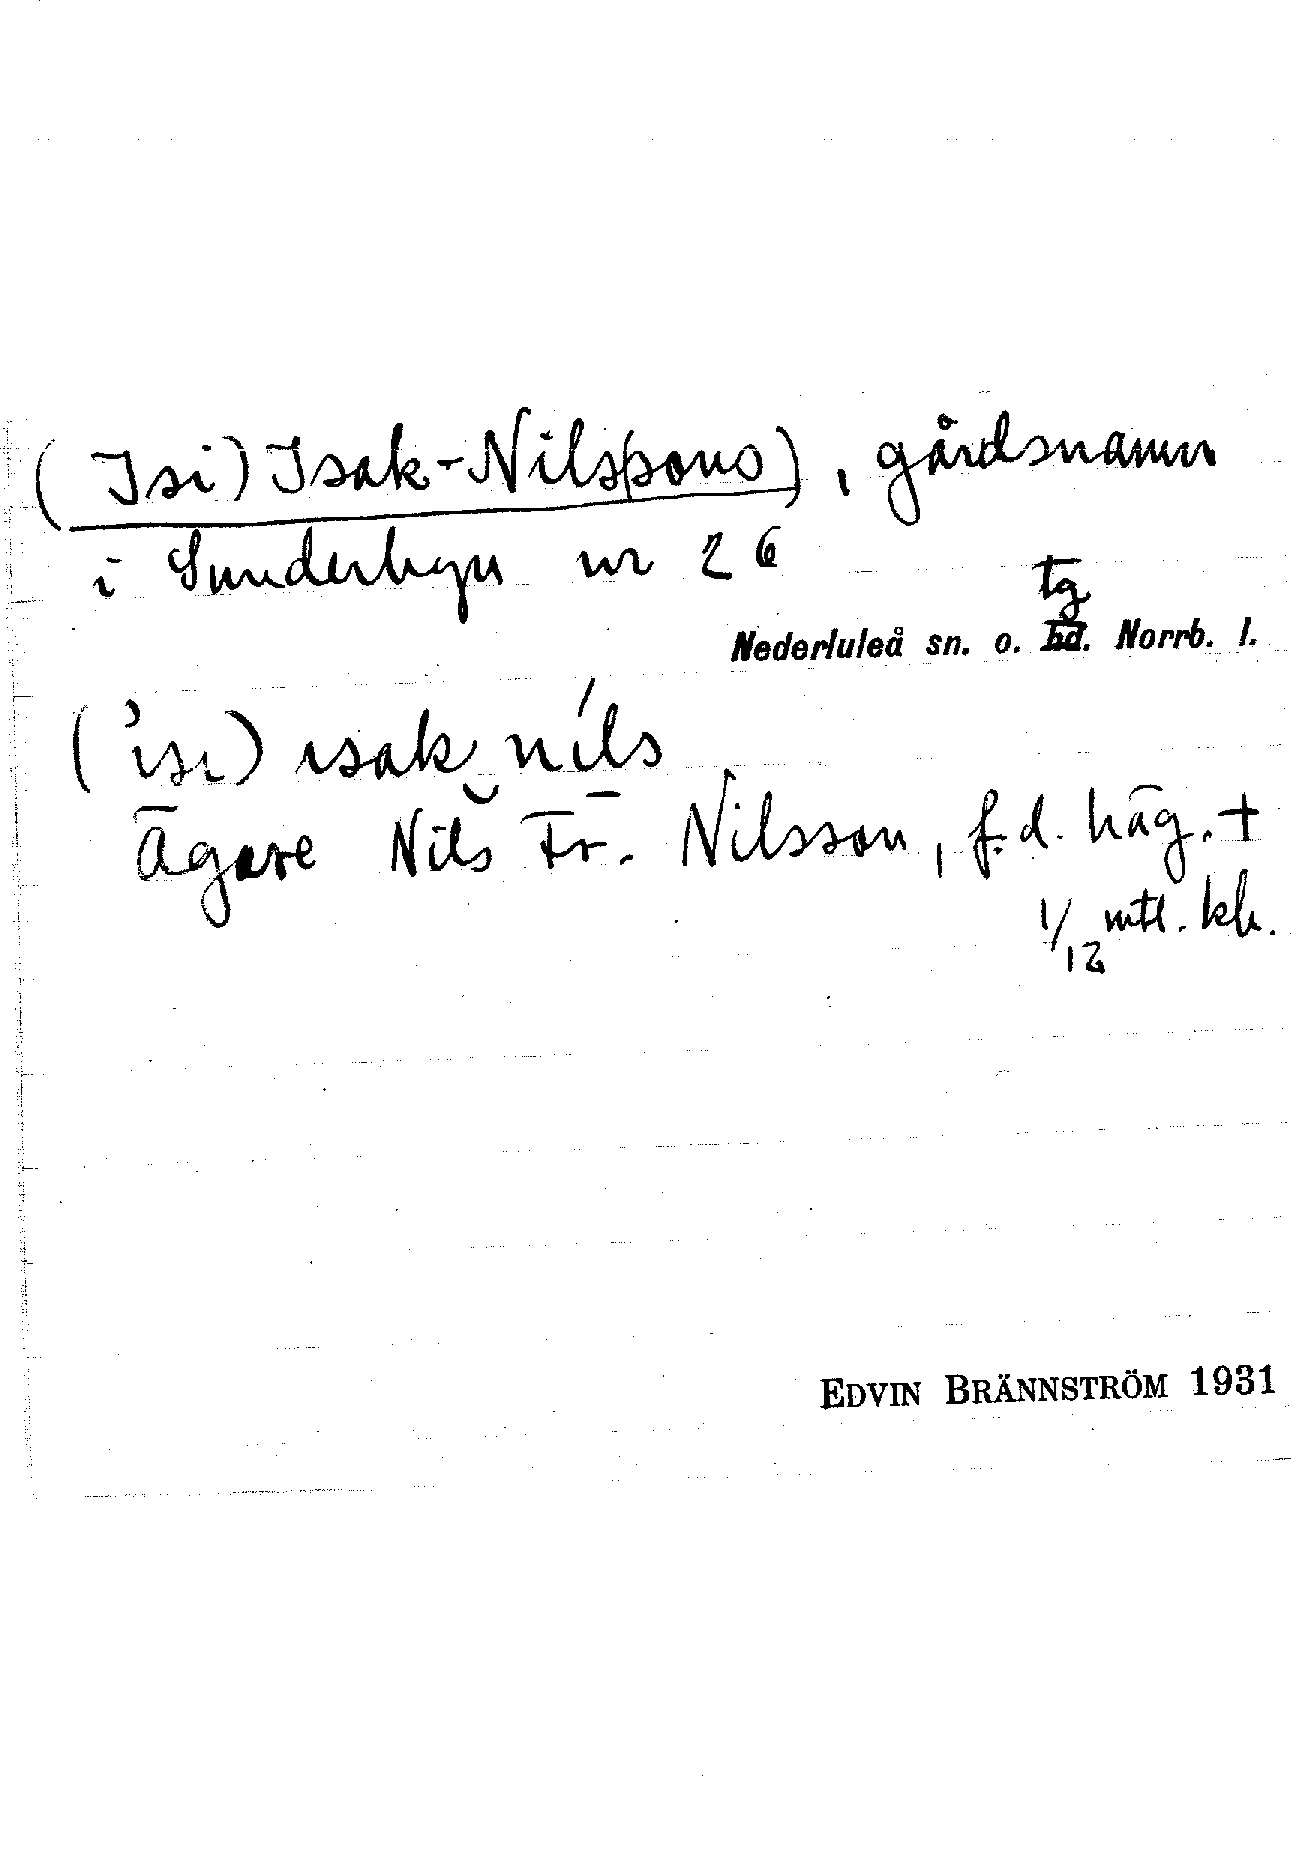 (Isi) Isak-Nils(sons), gårdsnamn
i Sunderbyn nr 26
tg
Nederluleå sn. o. hd. Norrb. l.
(ˈisi) isak‿níls
Ägare Nils Fr. Nilsson, f.d. häg. +
1/12 mtl. kh.
EDVIN BRÄNNSTRÖM 1931